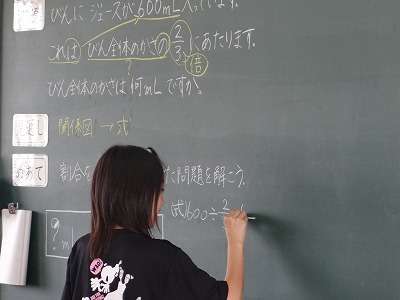 びんにジュースが600mL入っています。
これは びん全体のかさの2/3にあたります。
倍
?
びん全体のかさは何mLですか。
関係図→式
めあて 割合を た問題を解こう。
式 600÷2
? ml